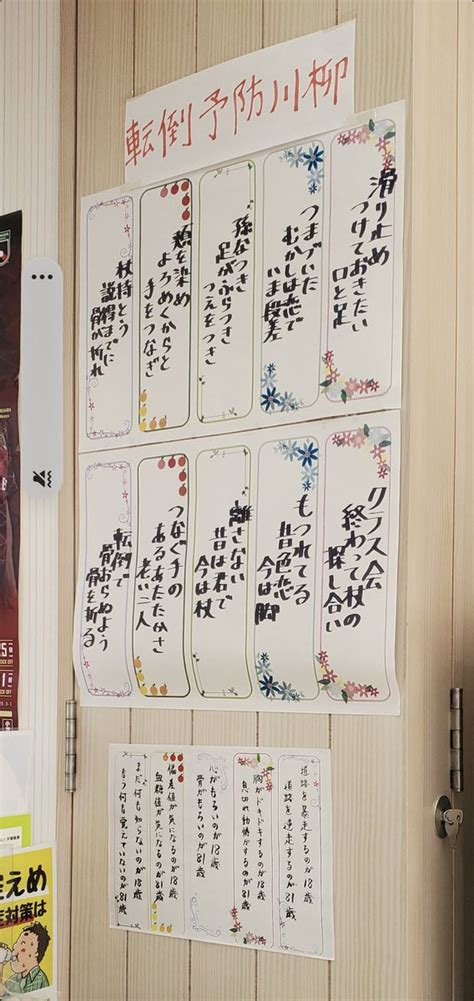 転倒予防川柳
滑り止め
つけておきたい
口と足
つまずいた
むかしは恋で
いま段差
孫なつき
足がふらつき
つえをつき
頬を染め
よろめくからと
手をつなぎ
杖持とう
説得までに
骨が折れ
クラス会
終わって杖の
探し合い
もつれてる
昔色恋
今は脚
離さない
昔は君で
今は杖
つなぐ手の
あるあたたかさ
老い二人
転倒で
骨おらぬよう
骨を折る
道路を暴走するのが18歳
道路を逆走するのが81歳
胸がドキドキするのが18歳
息切れ動悸がするのが81歳
心がもろいのが18歳
骨がもろいのが81歳
偏差値が気になるのが18歳
血糖値が気になるのが81歳
まだ何も知らないのが18歳
もう何も覚えていないのが81歳
えめ
対策は